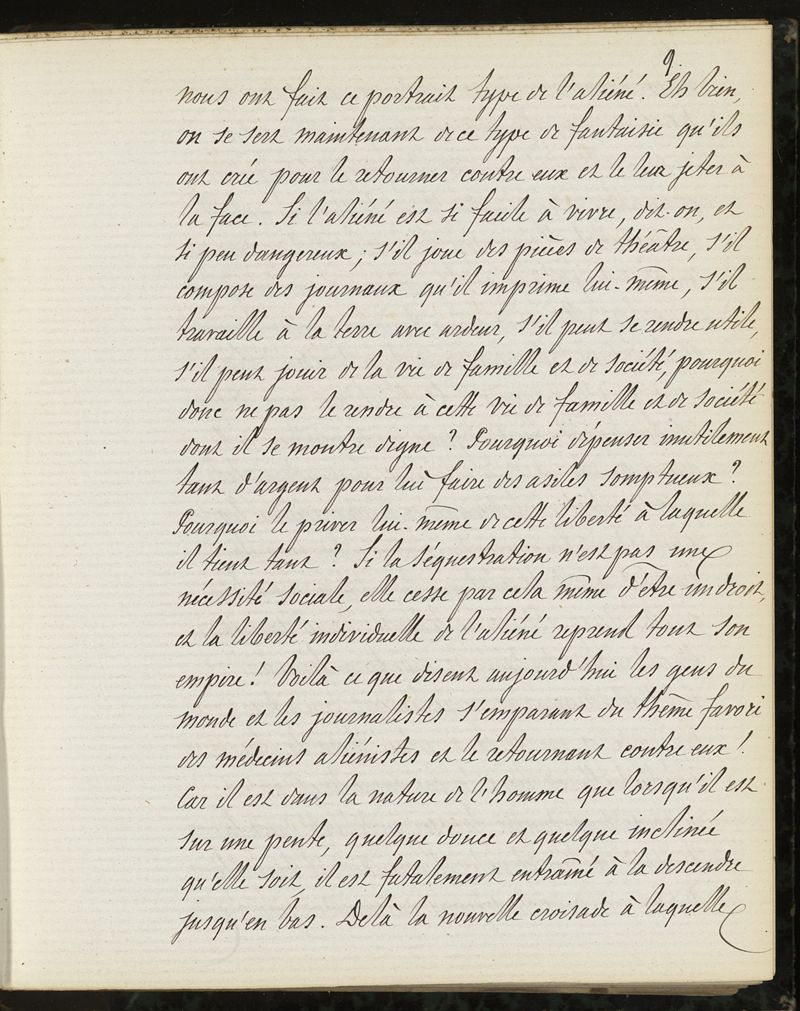 9.
nous ont fait ce portrait type de l'aliéné. Eh bien,
on se sert maintenant de ce type de fantaisie qu'ils
ont créé pour le retourner contre eux et le leur jeter à
la face. Si l'aliéné est si facile à vivre, dit-on, et
si peu dangereux ; s'il joue des pièces de théâtre, s'il
compose des journaux qu'il imprime lui-même, s'il
travaille à la terre avec ardeur, s'il peut se rendre utile,
s'il peut jouir de la vie de famille et de société, pourquoi
donc ne pas le rendre à cette vie de famille et de société
dont il se montre digne ? Pourquoi dépenser inutilement
tant d'argent pour lui faire des asiles somptueux ?
Pourquoi le priver lui-même de cette liberté à laquelle
il tient tant ? Si la séquestration n'est pas une
nécessité sociale, elle cesse par cela même d'être un droit,
et la liberté individuelle de l'aliéné reprend tout son
empire ! Voilà ce que disent aujourd'hui les gens du
monde et les journalistes s'emparant du thème favori
des médecins aliénistes et le retournant contre eux !
Car il est dans la nature de l'homme que lorsqu'il est
sur une pente, quelque douce et quelque inclinée
qu'elle soit, il est fatalement entraîné à la descendre
jusqu'en bas. De là la nouvelle croisade à laquelle